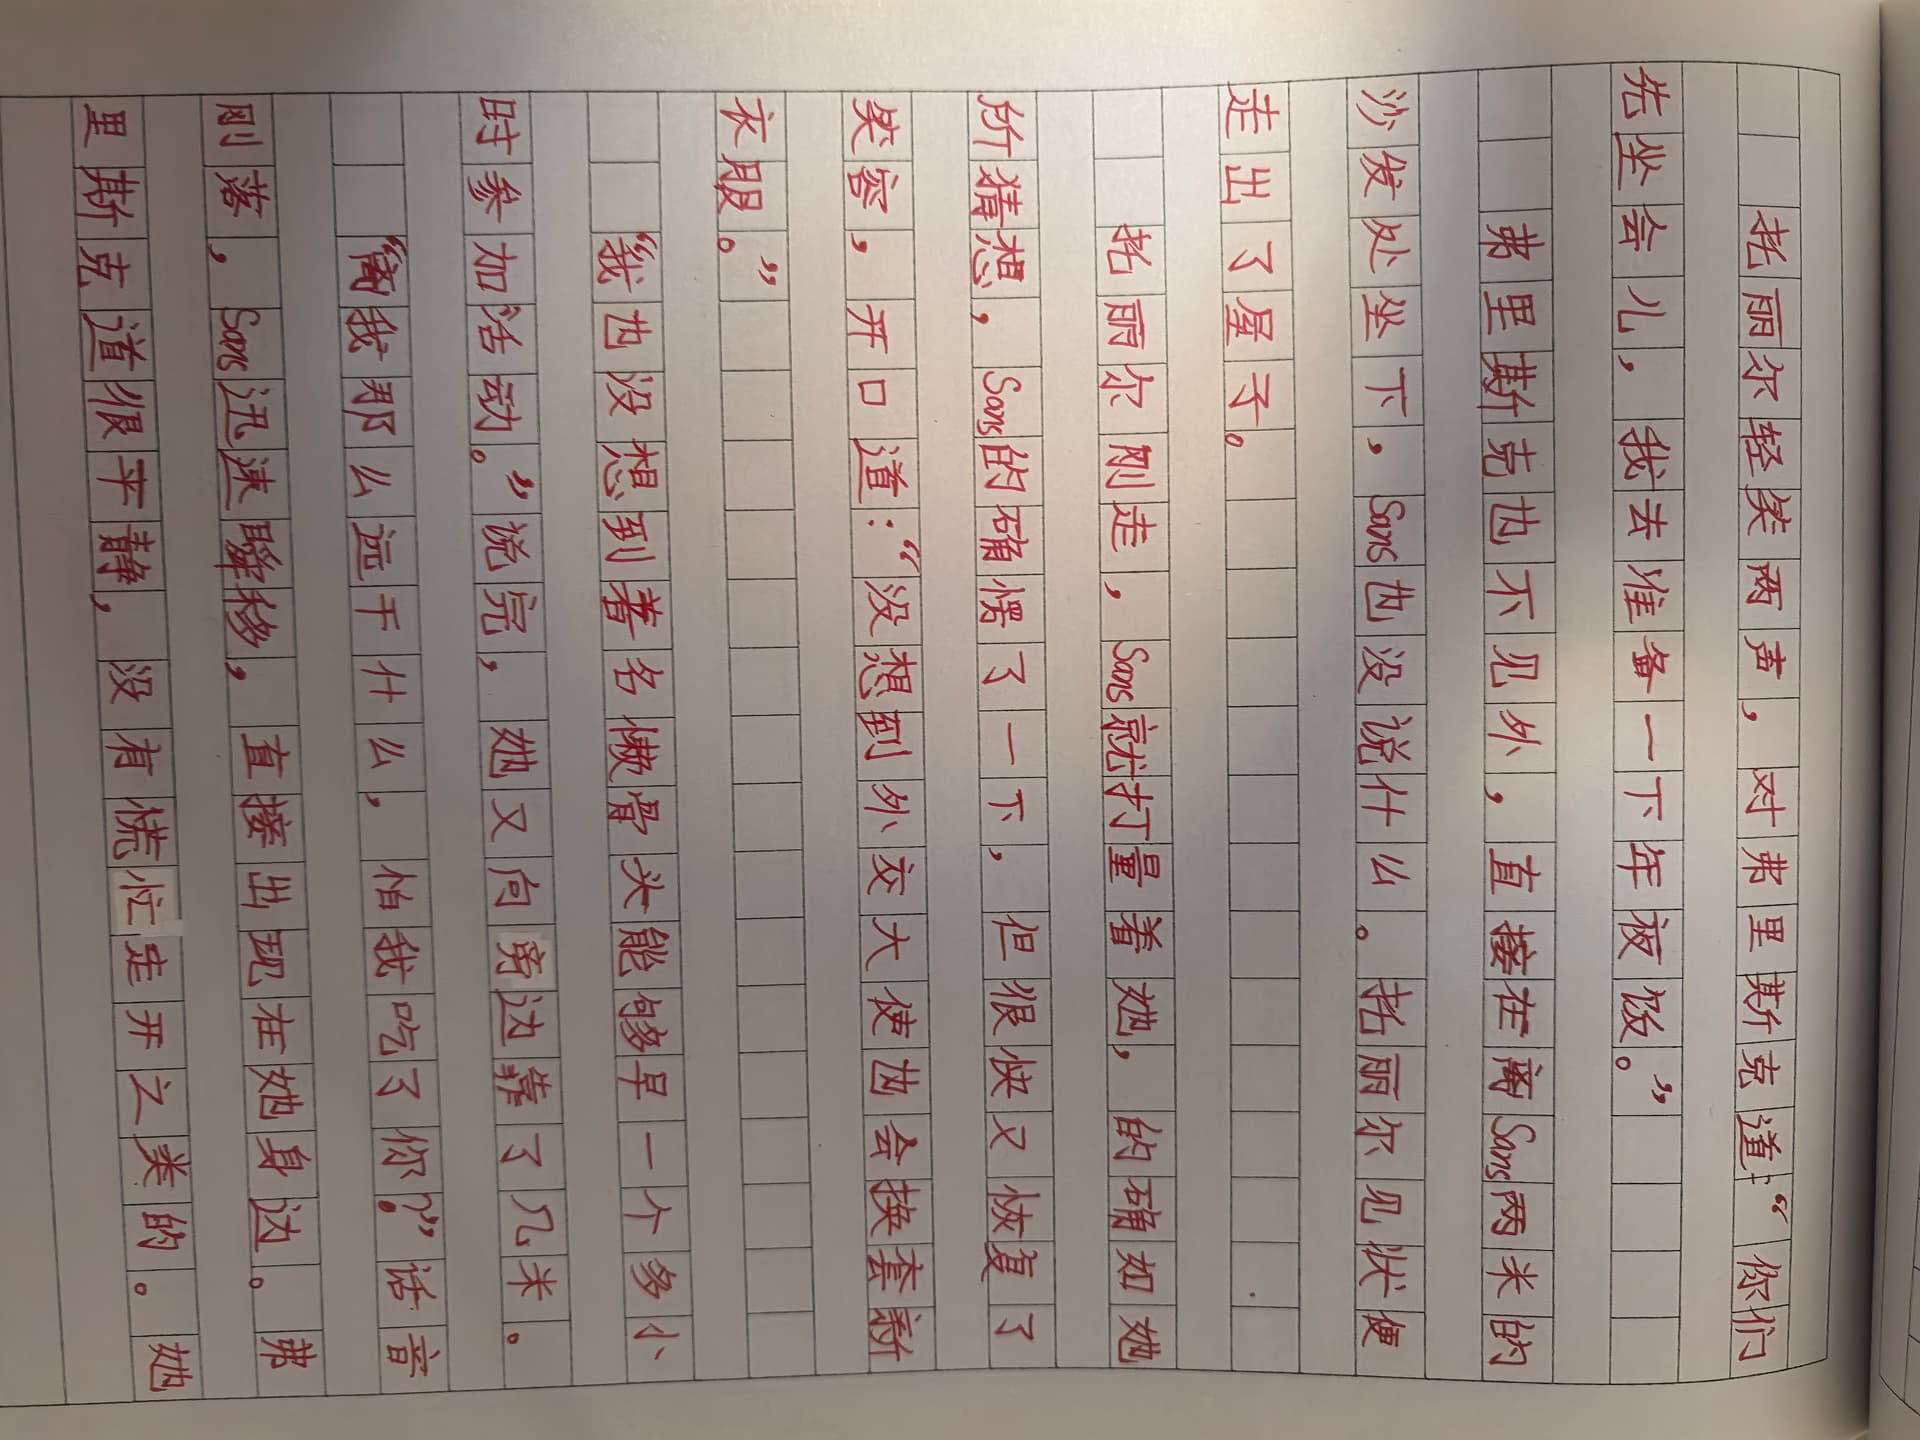 托丽尔轻笑两声，对弗里斯克道：“你们
先坐会儿，我去准备一下年夜饭。”
弗里斯克也不见外，直接在离Sans两米的
沙发处坐下，Sans也没说什么。托丽尔见状便
走出了屋子。
托丽尔刚走，Sans就打量着她，的确如她
所猜想，Sans的确愣了一下，但很快又恢复了
笑容，开口道：“没想到外交大使也会换套新
衣服。”
“我也没想到著名懒骨头能够早一个多小
时参加活动。”说完，她又向旁边靠了几米。
“离我那么远干什么，怕我吃了你？”话音
刚落，Sans迅速瞬移，直接出现在她身边。弗
里斯克道很平静，没有慌忙走开之类的。她